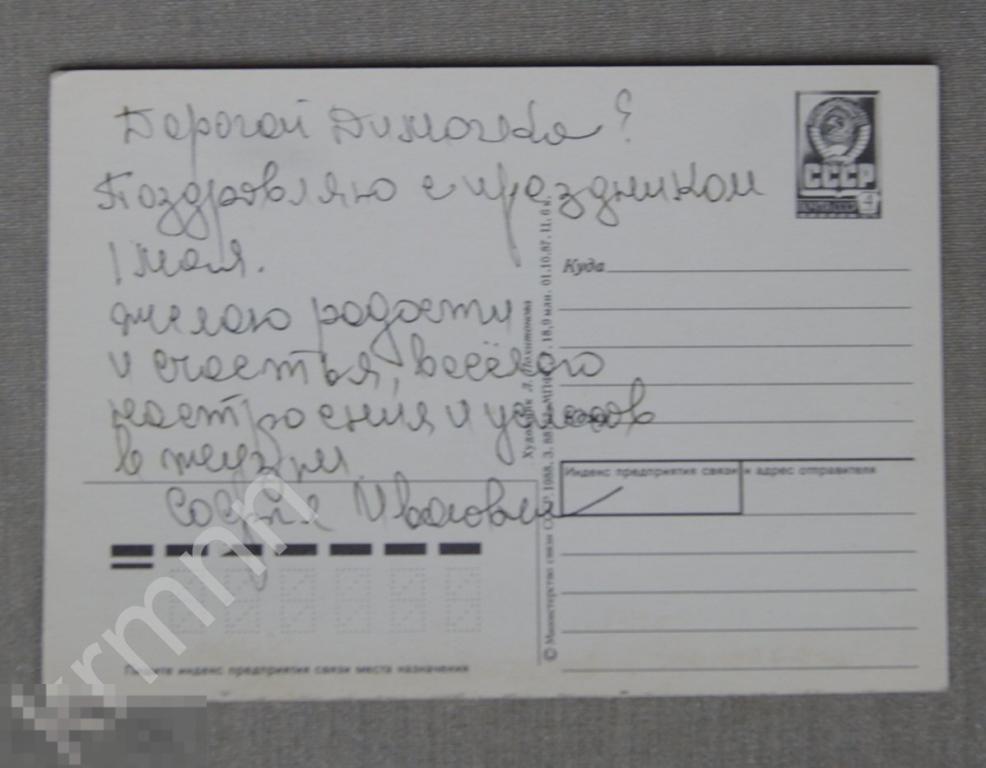 Дорогой Димочка!
Поздравляю с праздником
1 мая.
желаю радости
и счастья, весёлого
настроения и успехов
в жизни
Софья Ивановна
СССР
4
Куда
Кому
Индекс предприятия связи и адрес отправителя
Пишите индекс предприятия связи места назначения
Художник Л. Похитонова
© Министерство связи СССР, 1988. З. 88 18,9 млн. 01.10.87. 11. 6 к.
krmnm